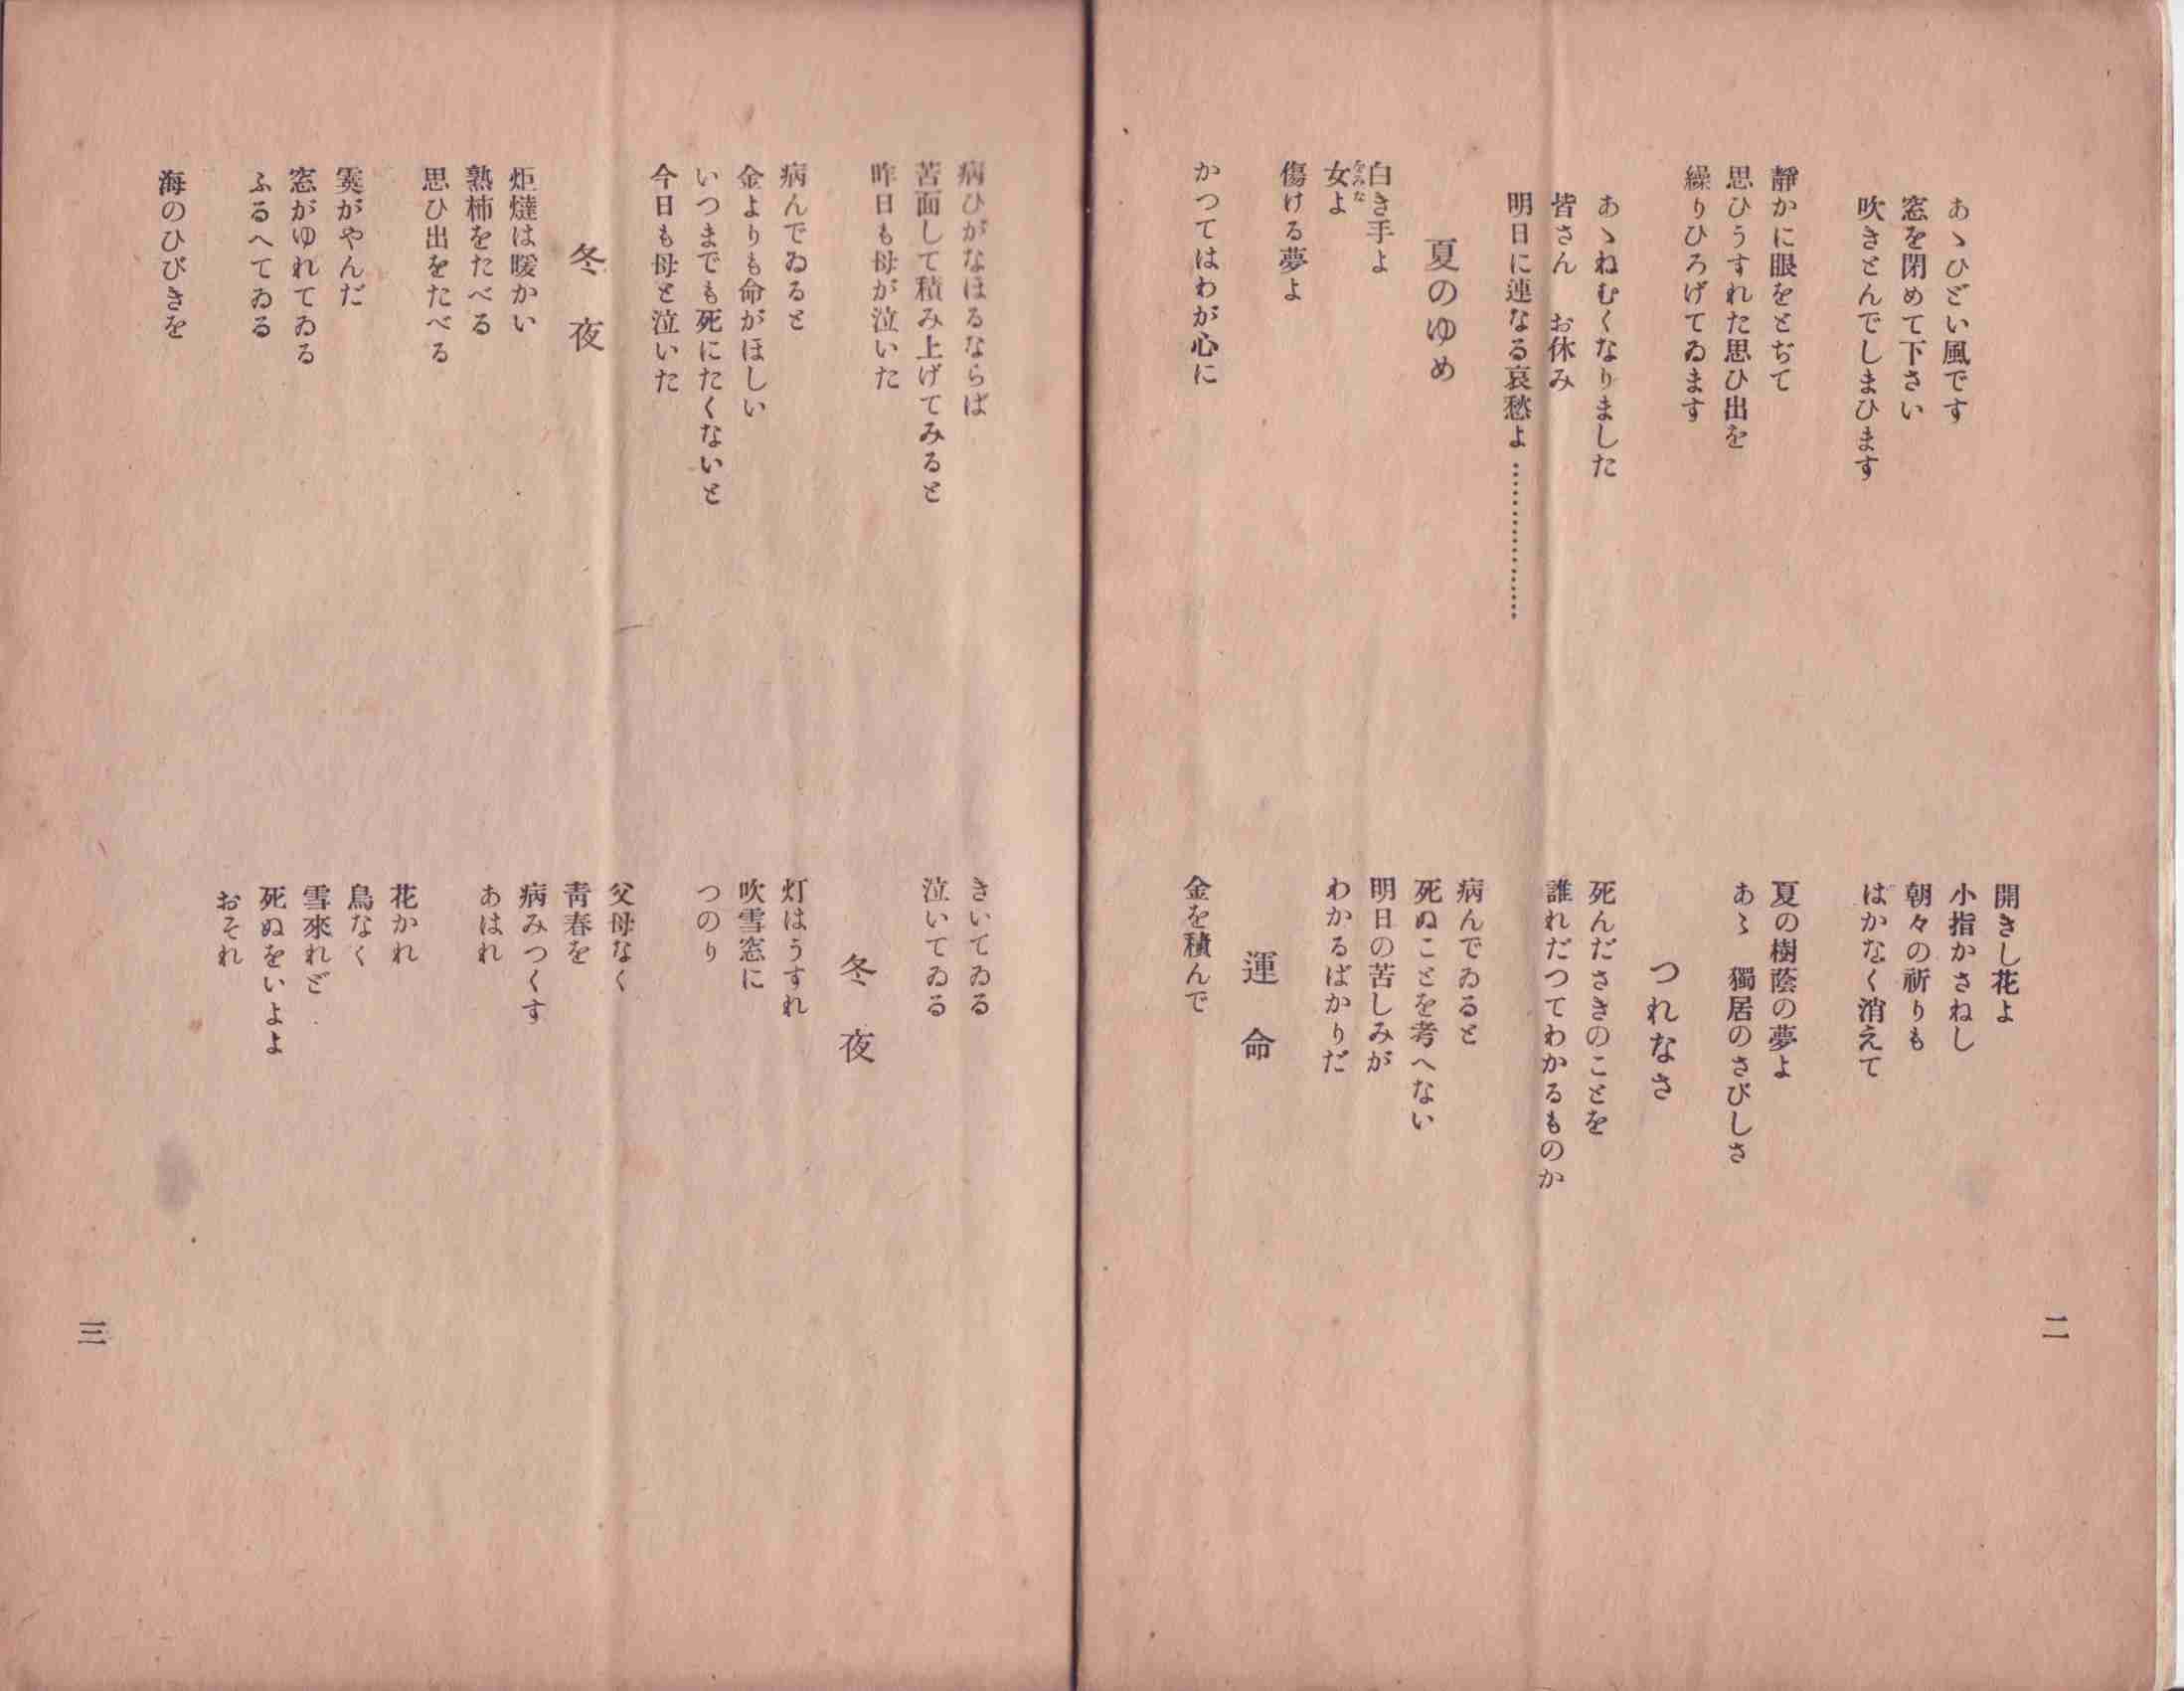 あゝひどい風です
窓を閉めて下さい
吹きとんでしまひます
靜かに眼をとぢて
思ひうすれた思ひ出を
繰りひろげてゐます
あゝねむくなりました
皆さん　お休み
明日に連なる哀愁よ………………
夏のゆめ
白き手よ
女よ
をみな
傷ける夢よ
かつてはわが心に
開きし花よ
小指かさねし
朝々の祈りも
はかなく消えて
夏の樹蔭の夢よ
あゝ　獨居のさびしさ
つれなさ
死んださきのことを
誰れだつてわかるものか
病んでゐると
死ぬことを考へない
明日の苦しみが
わかるばかりだ
運命
金を積んで
二
病ひがなほるならば
苦面して積み上げてみると
昨日も母が泣いた
病んでゐると
金よりも命がほしい
いつまでも死にたくないと
今日も母と泣いた
冬夜
炬燵は暖かい
熟柿をたべる
思ひ出をたべる
霙がやんだ
窓がゆれてゐる
ふるへてゐる
海のひびきを
きいてゐる
泣いてゐる
冬夜
灯はうすれ
吹雪窓に
つのり
父母なく
靑春を
病みつくす
あはれ
花かれ
鳥なく
雪來れど
死ぬをいよよ
おそれ
三